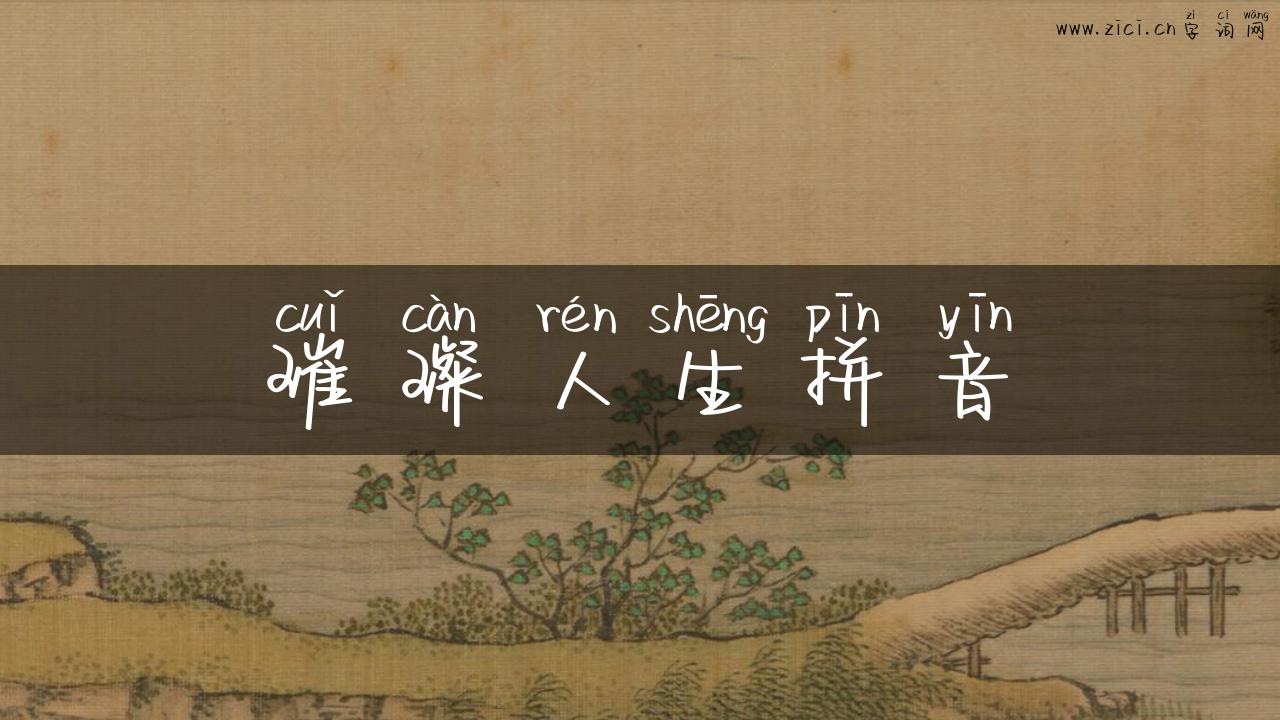 zì cí wǎng
www.zici.cn 字词网
cuǐ càn rén shēng pīn yīn
璀璨人生拼音